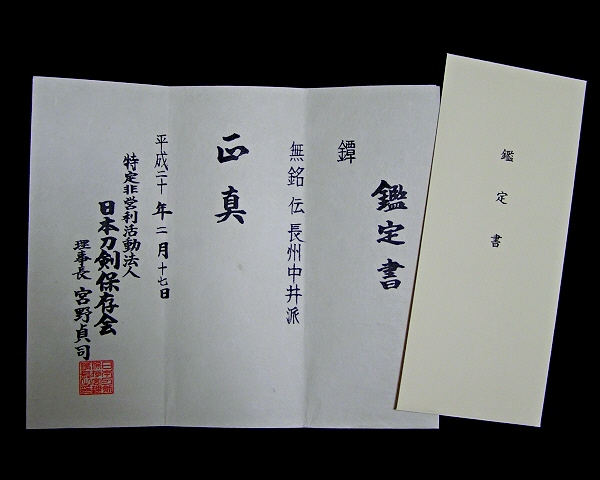 鑑定書
鐔
無銘 伝 長州中井派
正真
平成二十年二月十七日
特定非営利活動法人
日本刀剣保存会
理事長 宮野貞司
鑑定書